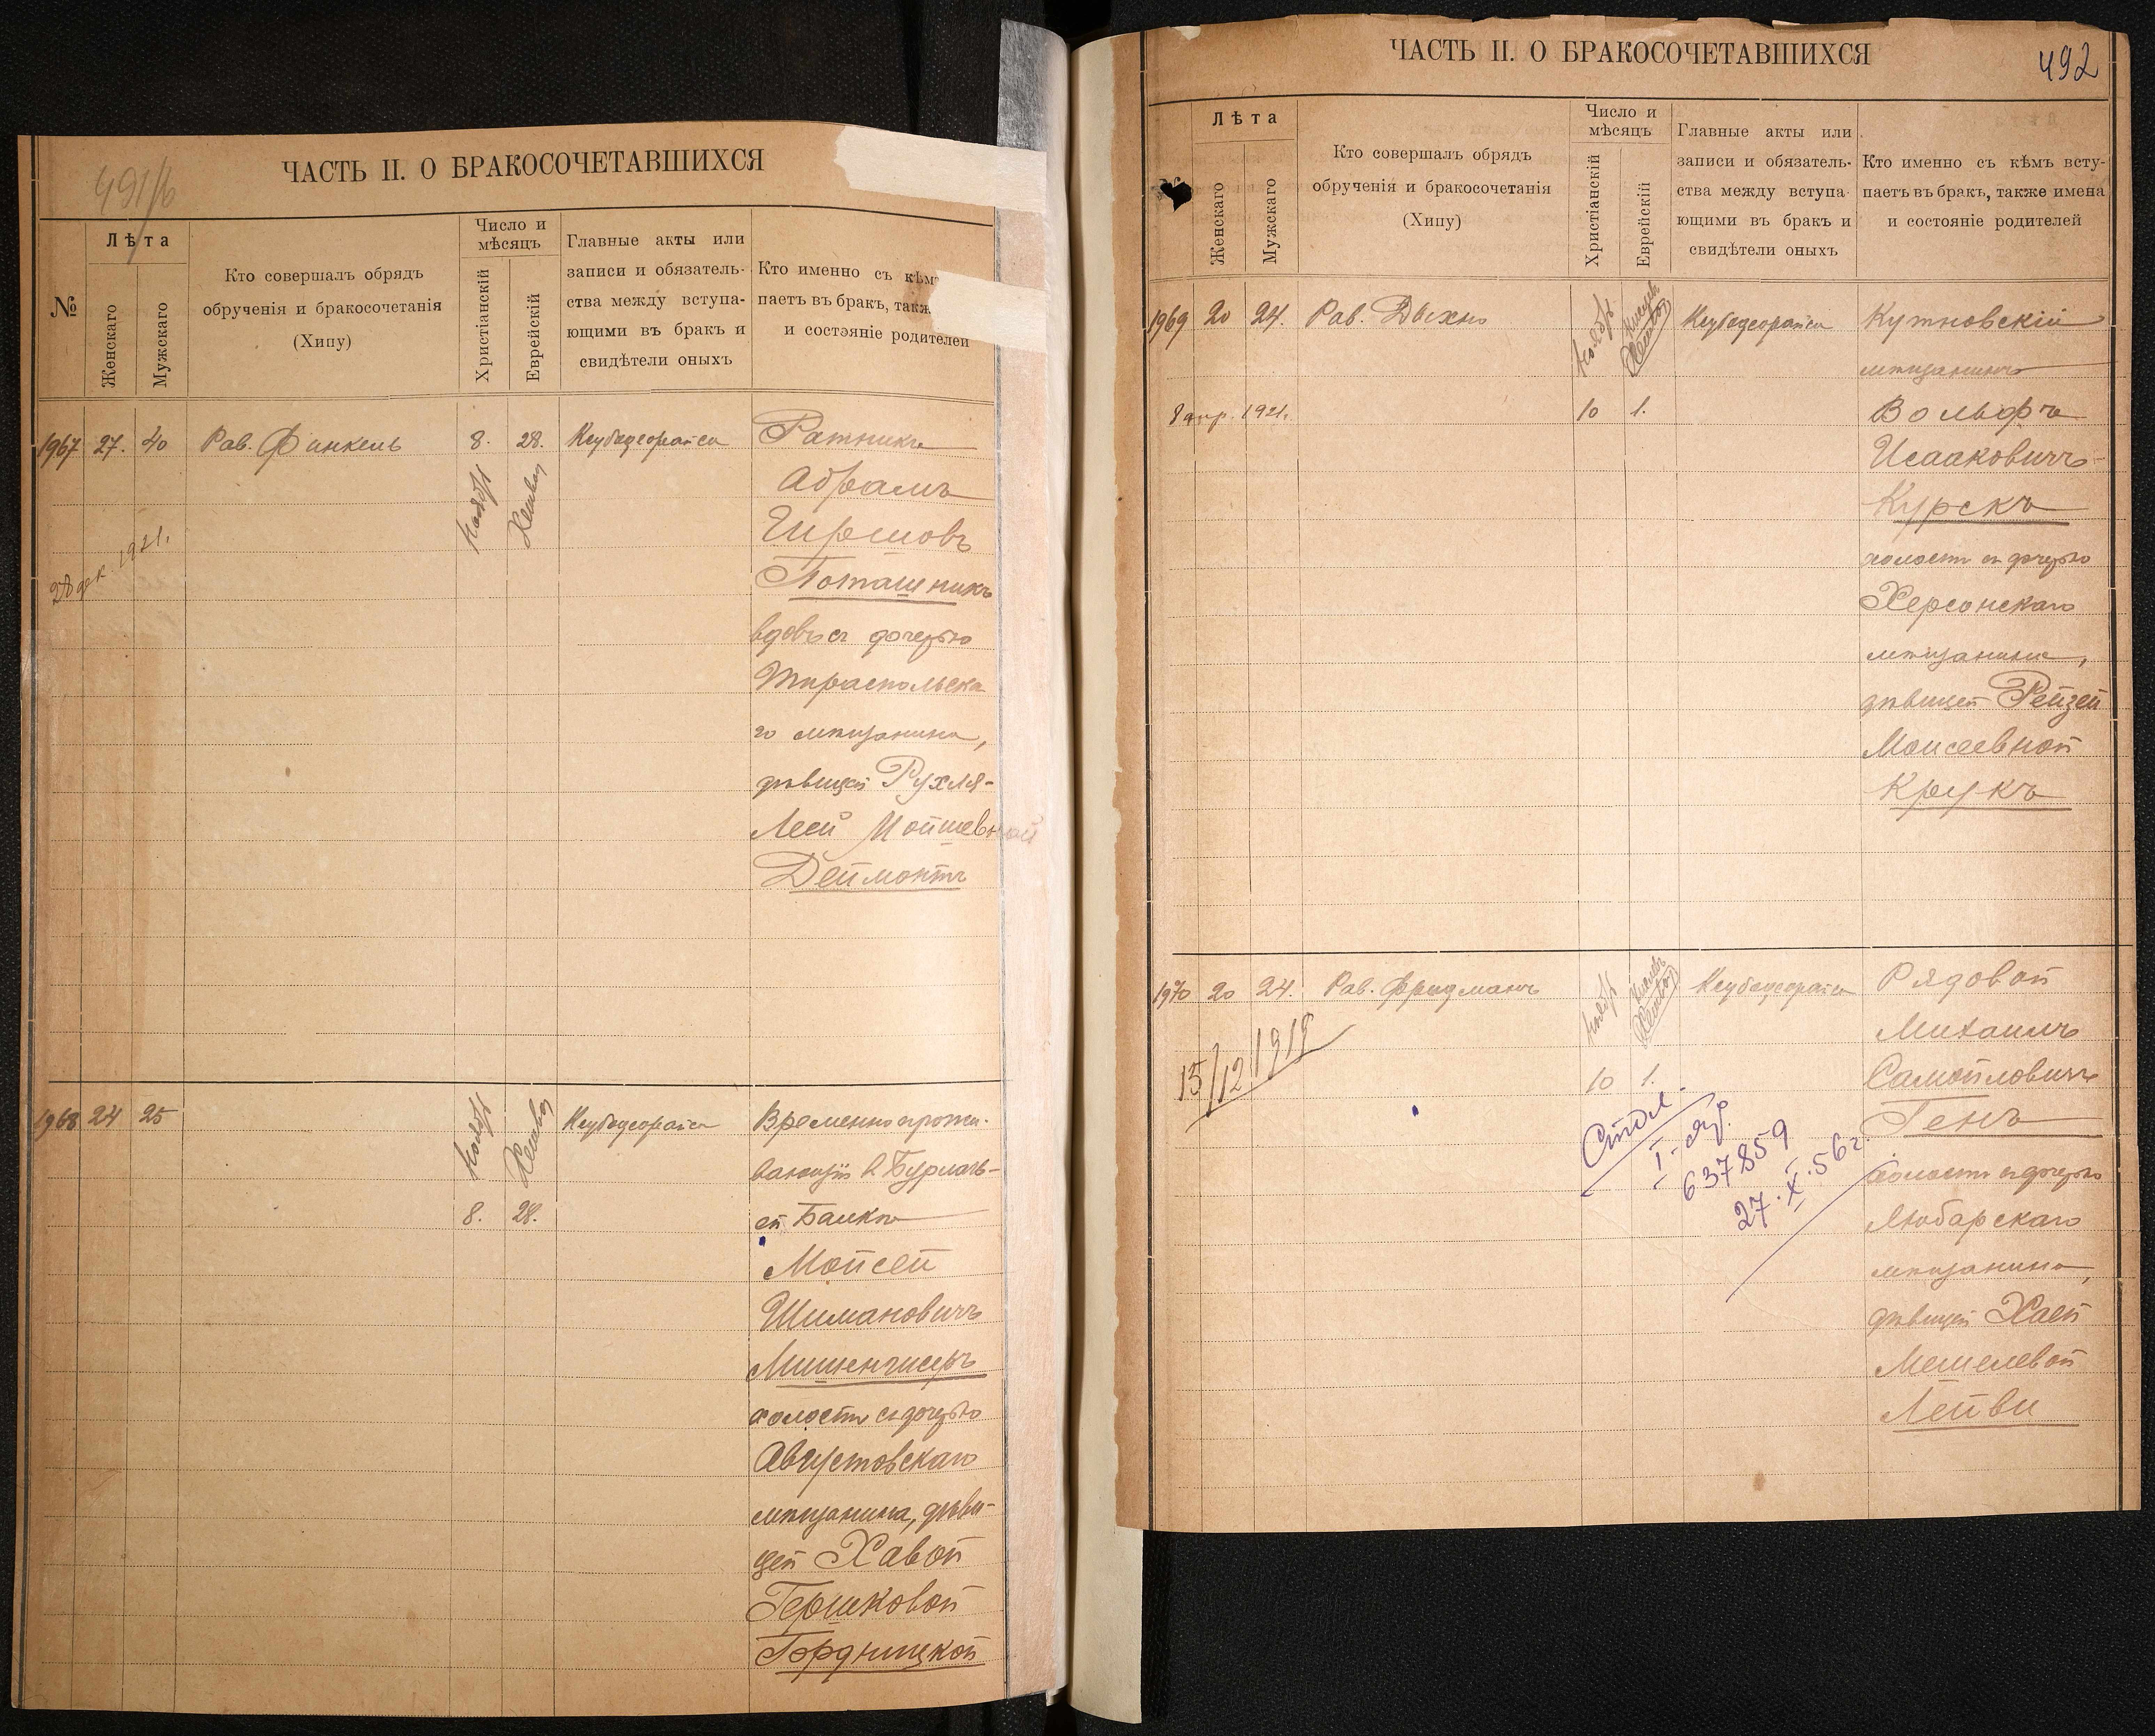 491/б
ЧАСТЬ II. О БРАКОСОЧЕТАВШИХСЯ
№
Лѣта
Женскаго
Мужскаго
Кто совершалъ обрядъ
обрученія и бракосочетанія
(Хипу)
Число и
мѣсяцъ
Христіанскій
Еврейскій
Главные акты или
записи и обязатель-
ства между вступа-
ющими въ бракъ и
свидѣтели оныхъ
Кто именно съ кѣм
паетъ въ бракъ, такж
и состояніе родителей
1967 27. 40 Рав. Финкель 8. 28. Ноябрь Хешван Ратникъ
Абрамъ
Гиршовъ
Поташникъ
вдовъ съ дочерью
Тираспольска
го мѣщанина,
дѣвицей Рухля-
Леей Мойшевной
Деймонтъ
28 дек. 1921.
1968 24 25 Ноябрь Хешван
8. 28.
Временно прожи-
вающій в Бурлачь-
ей Балкѣ
Мойсей
Шимановичъ
Мишенчисеръ
холостъ съ дочерью
Августовскаго
мѣщанина, дѣви-
цей Хавой
Гершковой
Гордницкой
492
ЧАСТЬ II. О БРАКОСОЧЕТАВШИХСЯ
Лѣта
Женскаго
Мужскаго
Кто совершалъ обрядъ
обрученія и бракосочетанія
(Хипу)
Число и
мѣсяцъ
Христіанскій
Еврейскій
Главные акты или
записи и обязатель-
ства между вступа-
ющими въ бракъ и
свидѣтели оныхъ
Кто именно съ кѣмъ всту-
паетъ въ бракъ, также имена
и состояніе родителей
1969 20 24. Рав. Дыхно Ноябрь Кислев Хешван
10 1.
8 апр. 1921.
Кутновскій
мѣщанинъ
Вольфъ
Исааковичъ
Курскъ
холостъ съ дочерью
Херсонскаго
мѣщанина,
дѣвицей Рейзей
Моисеевной
Крукъ
1970 20 24. Рав. Фридманъ Ноябрь Кислевъ Хешван
10 1.
15/12/1919
I-
637859
27.X.56г.
Рядовой
Михаилъ
Самойловичъ
Генъ
холостъ съ дочерью
Любарскаго
мѣщанина,
дѣвицей Хаей
Мешелевой
Лейви